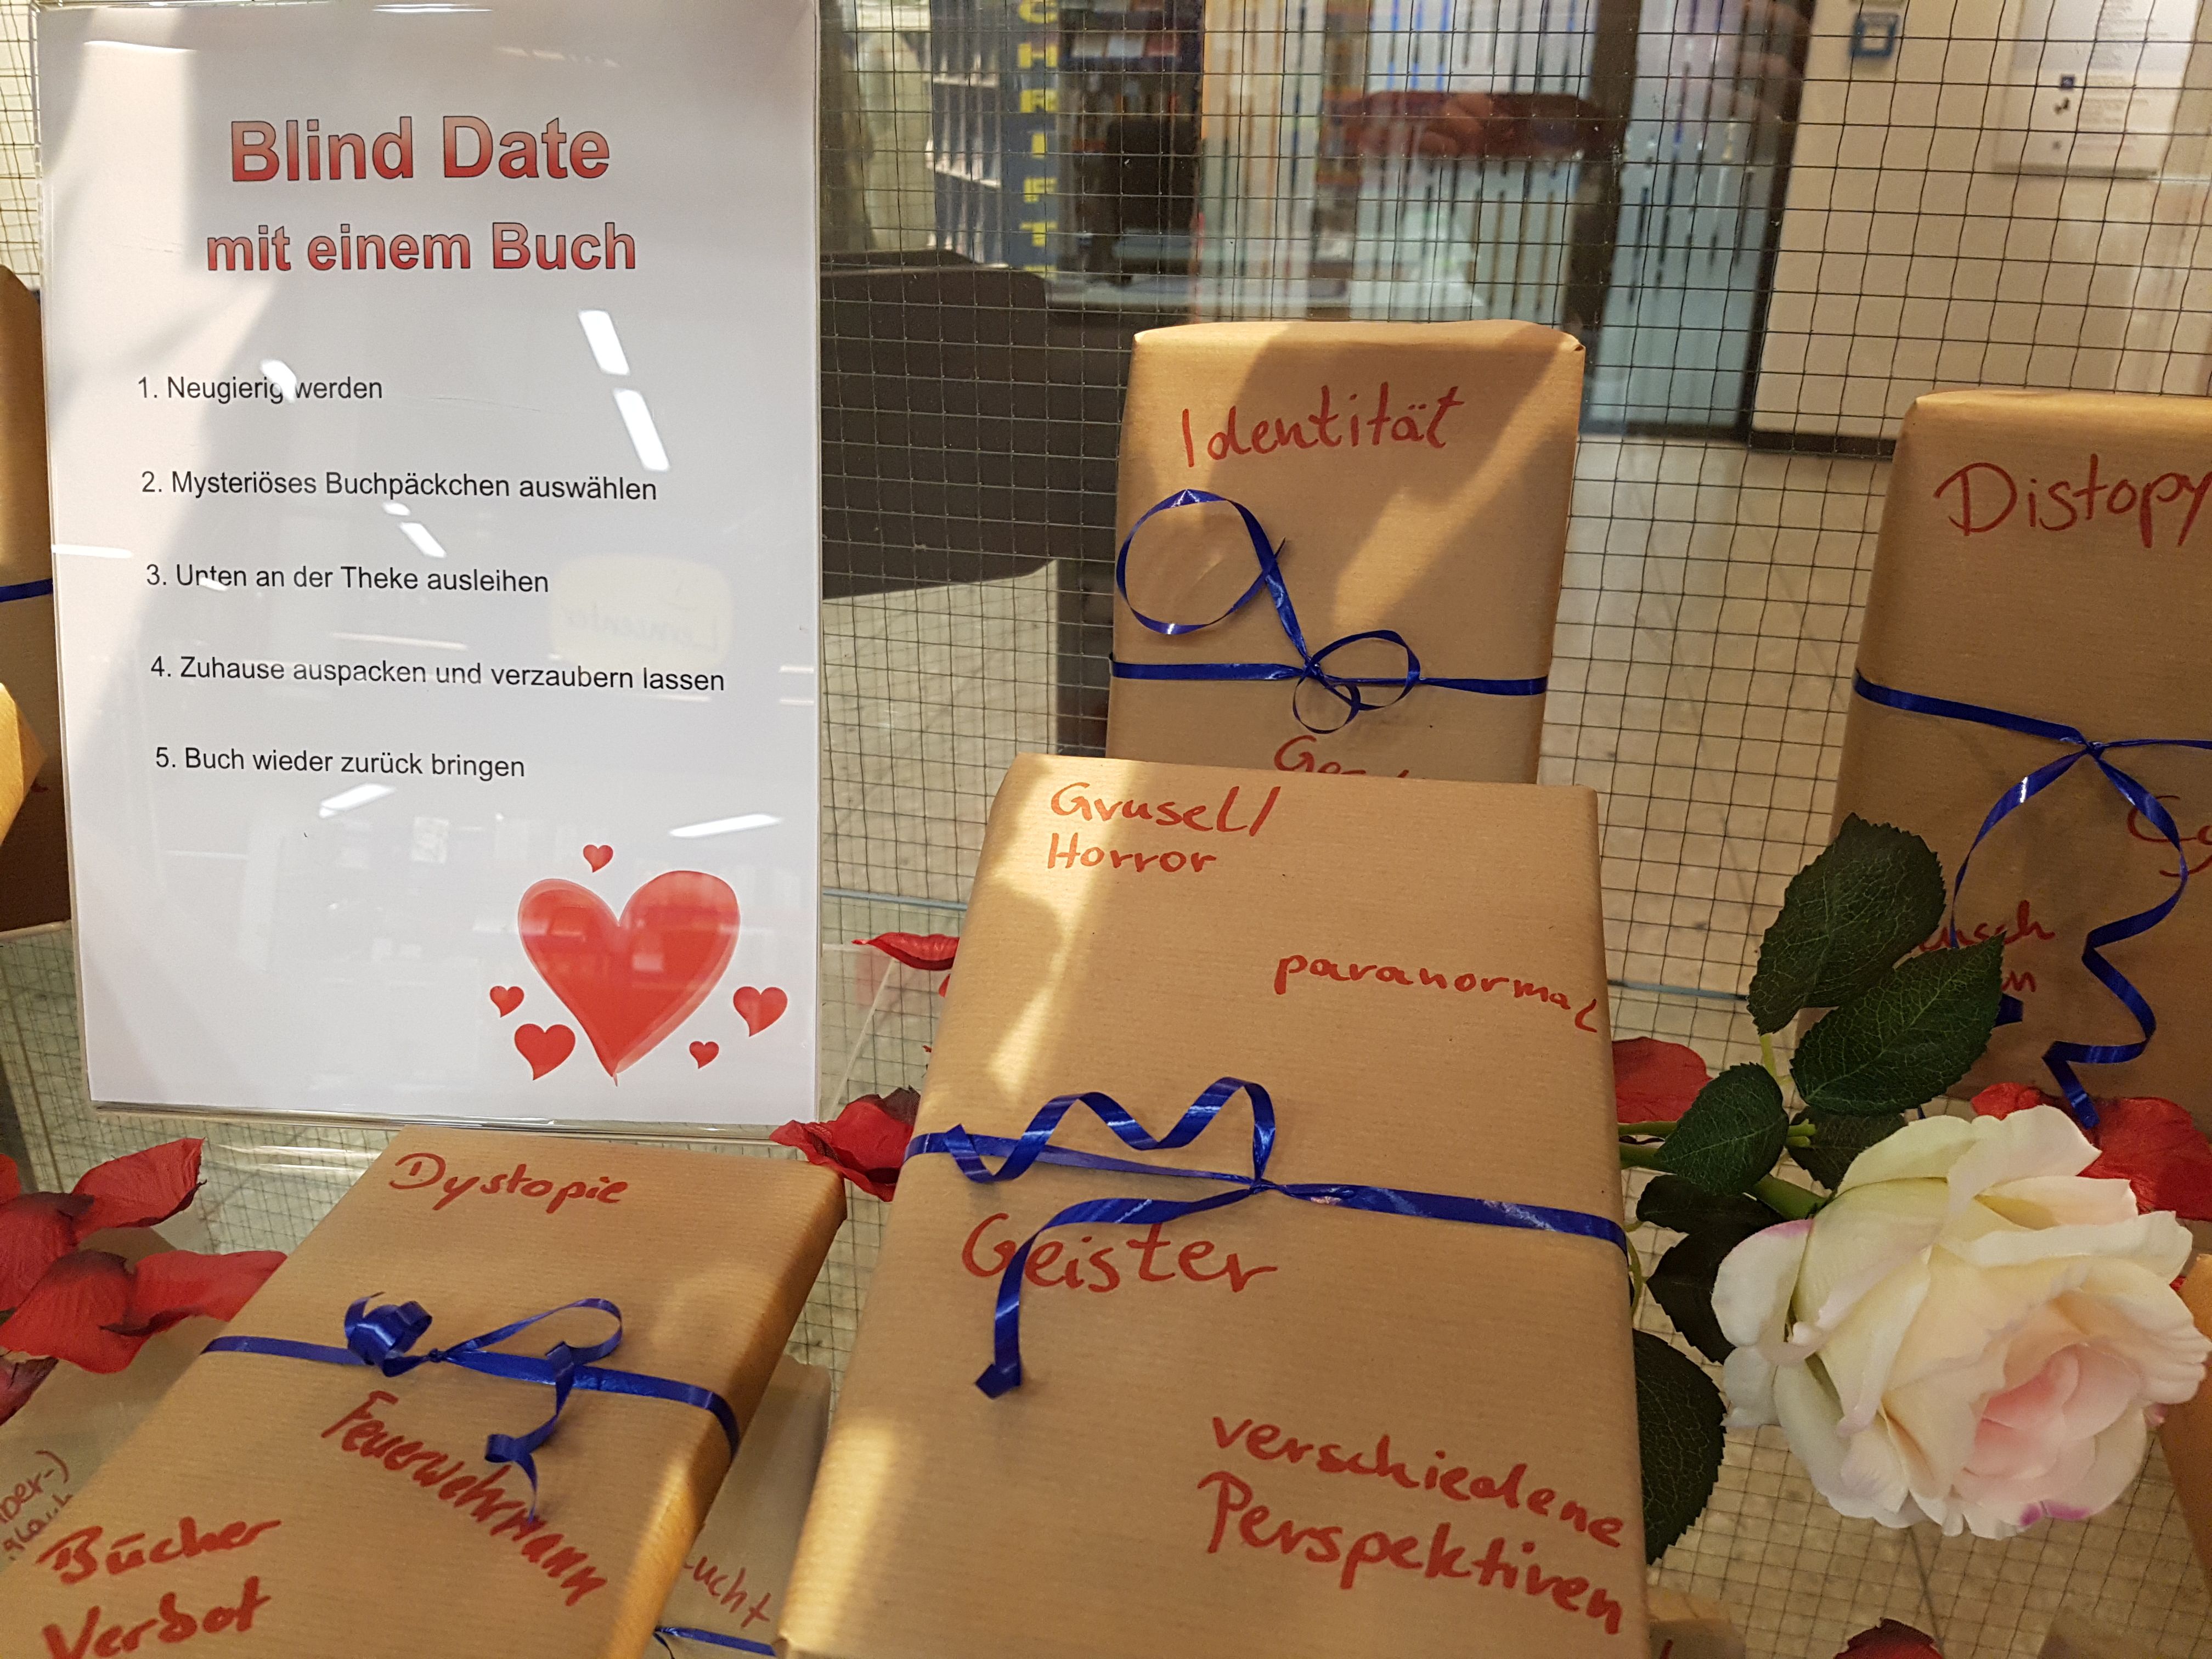 Blind Date
mit einem Buch
1. Neugierig werden
2. Mysteriöses Buchpäckchen auswählen
3. Unten an der Theke ausleihen
4. Zuhause auspacken und verzaubern lassen
5. Buch wieder zurück bringen
Identität
Distopy
Grusel/
Horror
paranormal
Geister
verschiedene
Perspektiven
Dystopie
Feuerwehrmann
Bücher
Verbot